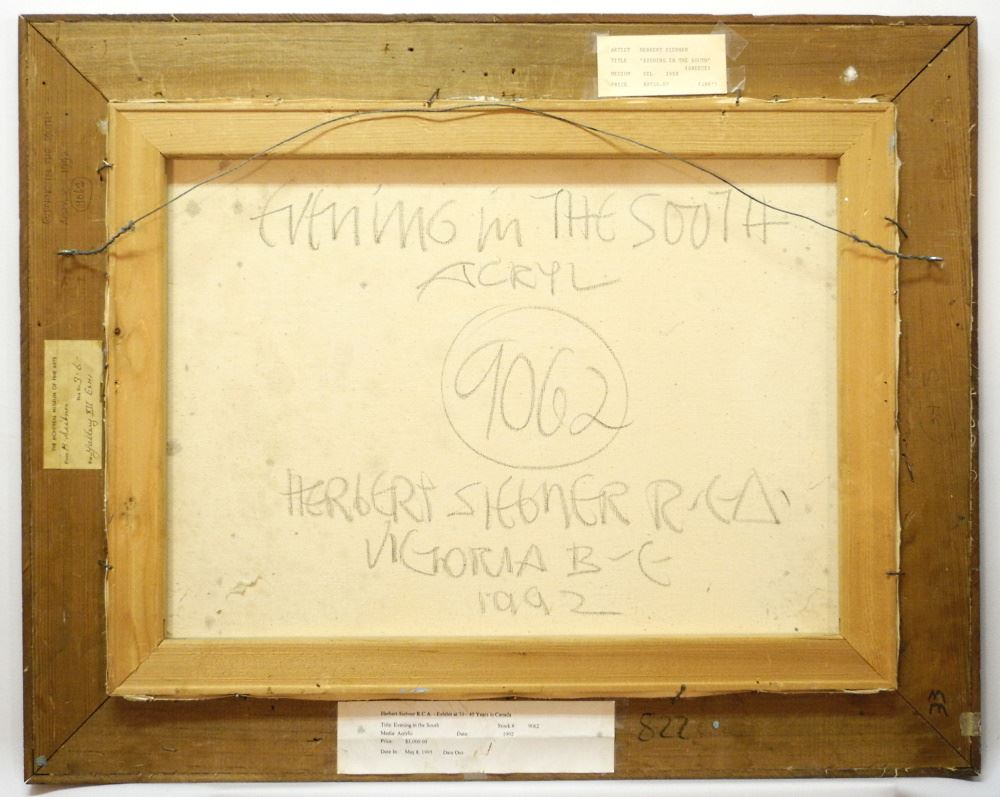 ARTIST HERBERT SIEBNER
TITLE "EVENING IN THE SOUTH"
MEDIUM OIL
PRICE
EVENING in THE SOUTH
ACRYL
9062
HERBERT SIEBNER R.C.A.
VICTORIA B-C
1992
9062
THE MONTREAL MUSEUM OF FINE ARTS
From H. Siebner
Gallery XII Exhi
Herbert Siebner R.C.A. - Exhibit at 70 - 40 Years in Canada
Title: Evening in the South Stock # 9062
Media: Acrylic Date: 1992
Price: $3,000.00
Date In: May 8, 1995 Date Out:
822
33